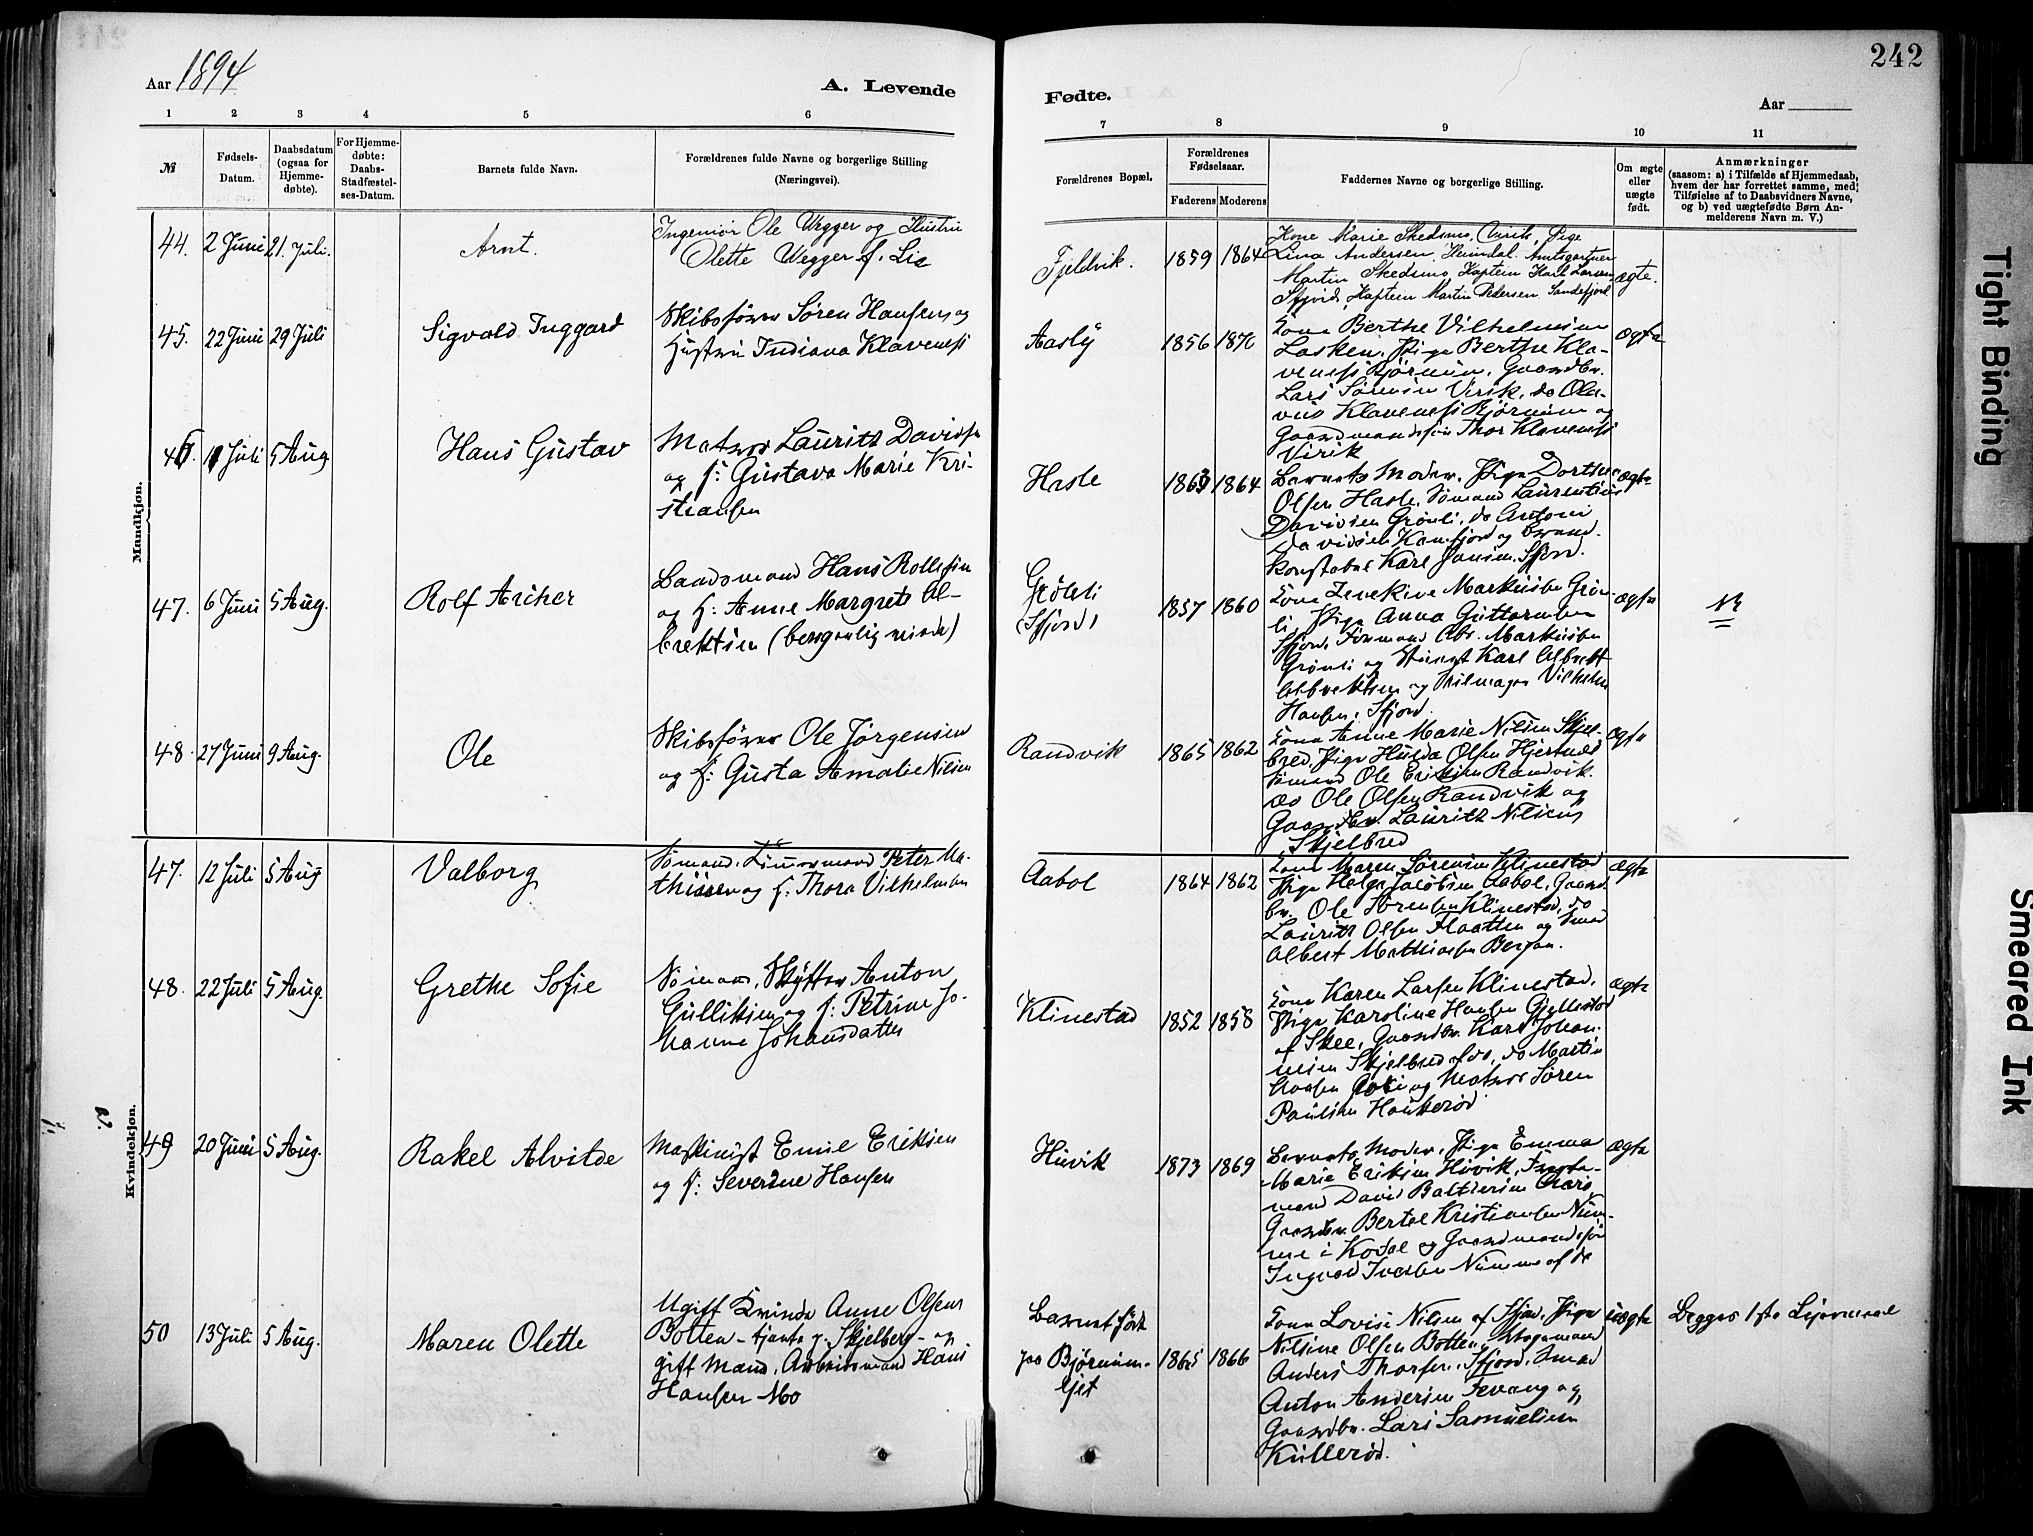 242
Aar 1894
A. Levende
Fødte.
Aar
1 2 3 4 5 6 7 8 9 10 11
№
Fødsels-
Datum.
Daabsdatum
(ogsaa for
Hjemme-
døbte).
For Hjemme-
døbte:
Daabs-
Stadfæstel-
ses-Datum.
Barnets fulde Navn.
Forældrenes fulde Navne og borgerlige Stilling
(Næringsvei).
Forældrenes Bopæl.
Forældrenes
Fødselsaar.
Faderens Moderens
Faddernes Navne og borgerlige Stilling.
Om ægte
eller
uægte
født.
Anmærkninger
(saasom: a) i Tilfælde af Hjemmedaab,
hvem der har forrettet samme, med
Tilføielse af to Daabsvidners Navne,
og b) ved uægtefødte Børn An-
melderens Navn m. V.)
Mandkjøn.
44. 2 Juni 21. Juli.
Arnt.
Ingeniør Ole Wegger og Hustru
Olette Wegger f. Lie
Fjeldvik.
1859 1864
Kone Marie Skedsmo, Virik, Pige
Lina Andersen, Heimdal. Amtsgartner
Martin Skedsmo, Kaptein Karl Larsen
Sfjord, Kaptein Martin Pedersen, Sandefjord.
ægte.
45. 22 Juni 29 Juli
Sigvald Inggard
Skibsfører Søren Hansen og
Hustru Indiana Klaveness
Aasly
1856 1870
Kone Berthe Vilhelmine
Lasken, Pige Berthe Kla-
veness Bjørnum, Gaardbr.
Lars Sørensen Virik, do Ola-
vus Klaveness Bjørnum og
Gaardmandssøn Thor Klaveness
Virik
ægte
46. 11 Juli 5 Aug
Hans Gustav
Matros Lauritz Davidsen
og h: Gustava Marie Kri-
stiansen
Hasle
1863 1864
Barnets Moder, Pige Dorthe
Olsen Hasle, Sømand Laurentius
Davidsen Grønli, do Antoni
Davidsen Kamfjord og Brand-
konstabel Karl Jensen, Sfjord.
ægte
47. 6 Juni 5 Aug.
Rolf Archer
Baadsmand Hans Rollefsen
og h: Anne Margrete Al-
brektsen (borgerlig viede)
Grønli
(Sfjord)
1857 1860
Kone Markussen Grøn-
li, Pige Anna Guttormsen
Sfjord, Formand Abr. Markussen
Grønli og Karl Albrekt
Albrektsen og Seilmager Vilhelm
Hansen, Sfjord.
ægte
48. 27 Juni 9 Aug.
Ole
Skibsfører Ole Jørgensen
og h: Gusta Amalie Nilsen
Randvik
1865 1862
Kone Anne Marie Nilsen Skjel-
bred, Pige Hulda Olsen Hjertnæs
Sømand Ole Eriksen Randvik.
do Ole Olsen Randvik og
Gaardbr. Lauritz Nilsen,
Skjelbred
ægte
Kvindekjøn.
47. 12 Juli 5 Aug
Valborg
Sømand, Tømmermand Peter Ma-
thissen og h. Thora Vilhelmsen
Aabol
1864 1862
Kone Maren Sørensen Klinestad
Pige Helga Jacobsen Aabol, Gaard-
br. Ole Sørensen Klinestad, do
Lauritz Olsen Haatten og Smed
Albert Mathiasen Bergan.
ægte
48. 22 Juli 5 Aug.
Grethe Sofie
Sømand, Skytter Anton
Gulliksen og h: Petrine Jo-
hanne Johansdatter
Klinestad
1852 1858
Kone Karen Larsen Klinestad,
Pige Karoline Hansen Gjellestad
af Skee, Gaardbr. Karl Johan-
nesen Skjelbred af do, do Martin
og Matros Søren
Paulsen Haukerød
ægte
49 20 Juni 5 Aug.
Rakel Alvilde
Maskinist Emil Eriksen
og h: Severine Hansen
Huvik
1873 1869
Barnets Moder, Pige Emma
Marie Eriksen Huvik, Tømmer-
mand David Baltzersen Aarø
Gaardbr. Bertel Kristiansen Num-
me i Kodal og Gaardmandssøn
Ingvald Iversen Numme af do
ægte
50 13 Juli 5 Aug.
Maren Olette
Ugift Kvinde Anne Olsen
Botten - tjente p. Skjelberg - og
gift Mand, Arbeidsmand Hans
Hansen Mo
Barnet født
paa Bjørnum-
ejet
1865 1866
Kone Lovise Nilsen af Sfjord, Pige
Nilsine Olsen Botten,
Anders Thorsen, Sfjord, Smed
Anton Andersen Fevang og
Gaardbr. Lars Samuelsen
Kullerød.
uægte
Begges 1ste Lejermaal
Tight Binding
Smeared Ink